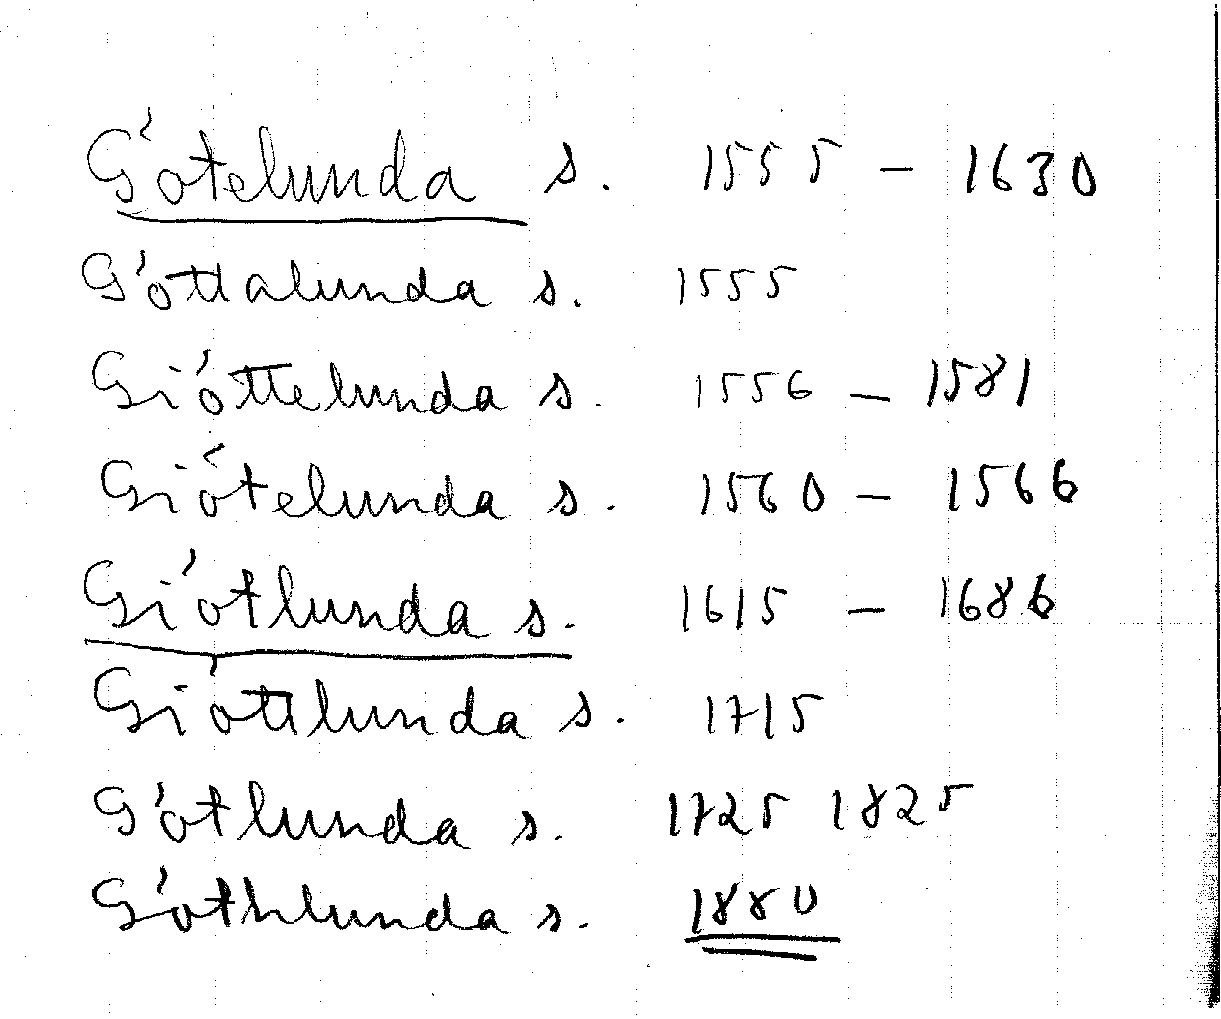 Götelunda s. 1555 - 1630
Göttalunda s. 1555
Giöttelunda s. 1556 - 1581
Giötelunda s. 1560 - 1566
Giötlunda s. 1615 - 1686
Giöttlunda s. 1715
Götlunda s. 1725 1825
Göthlunda s. 1880